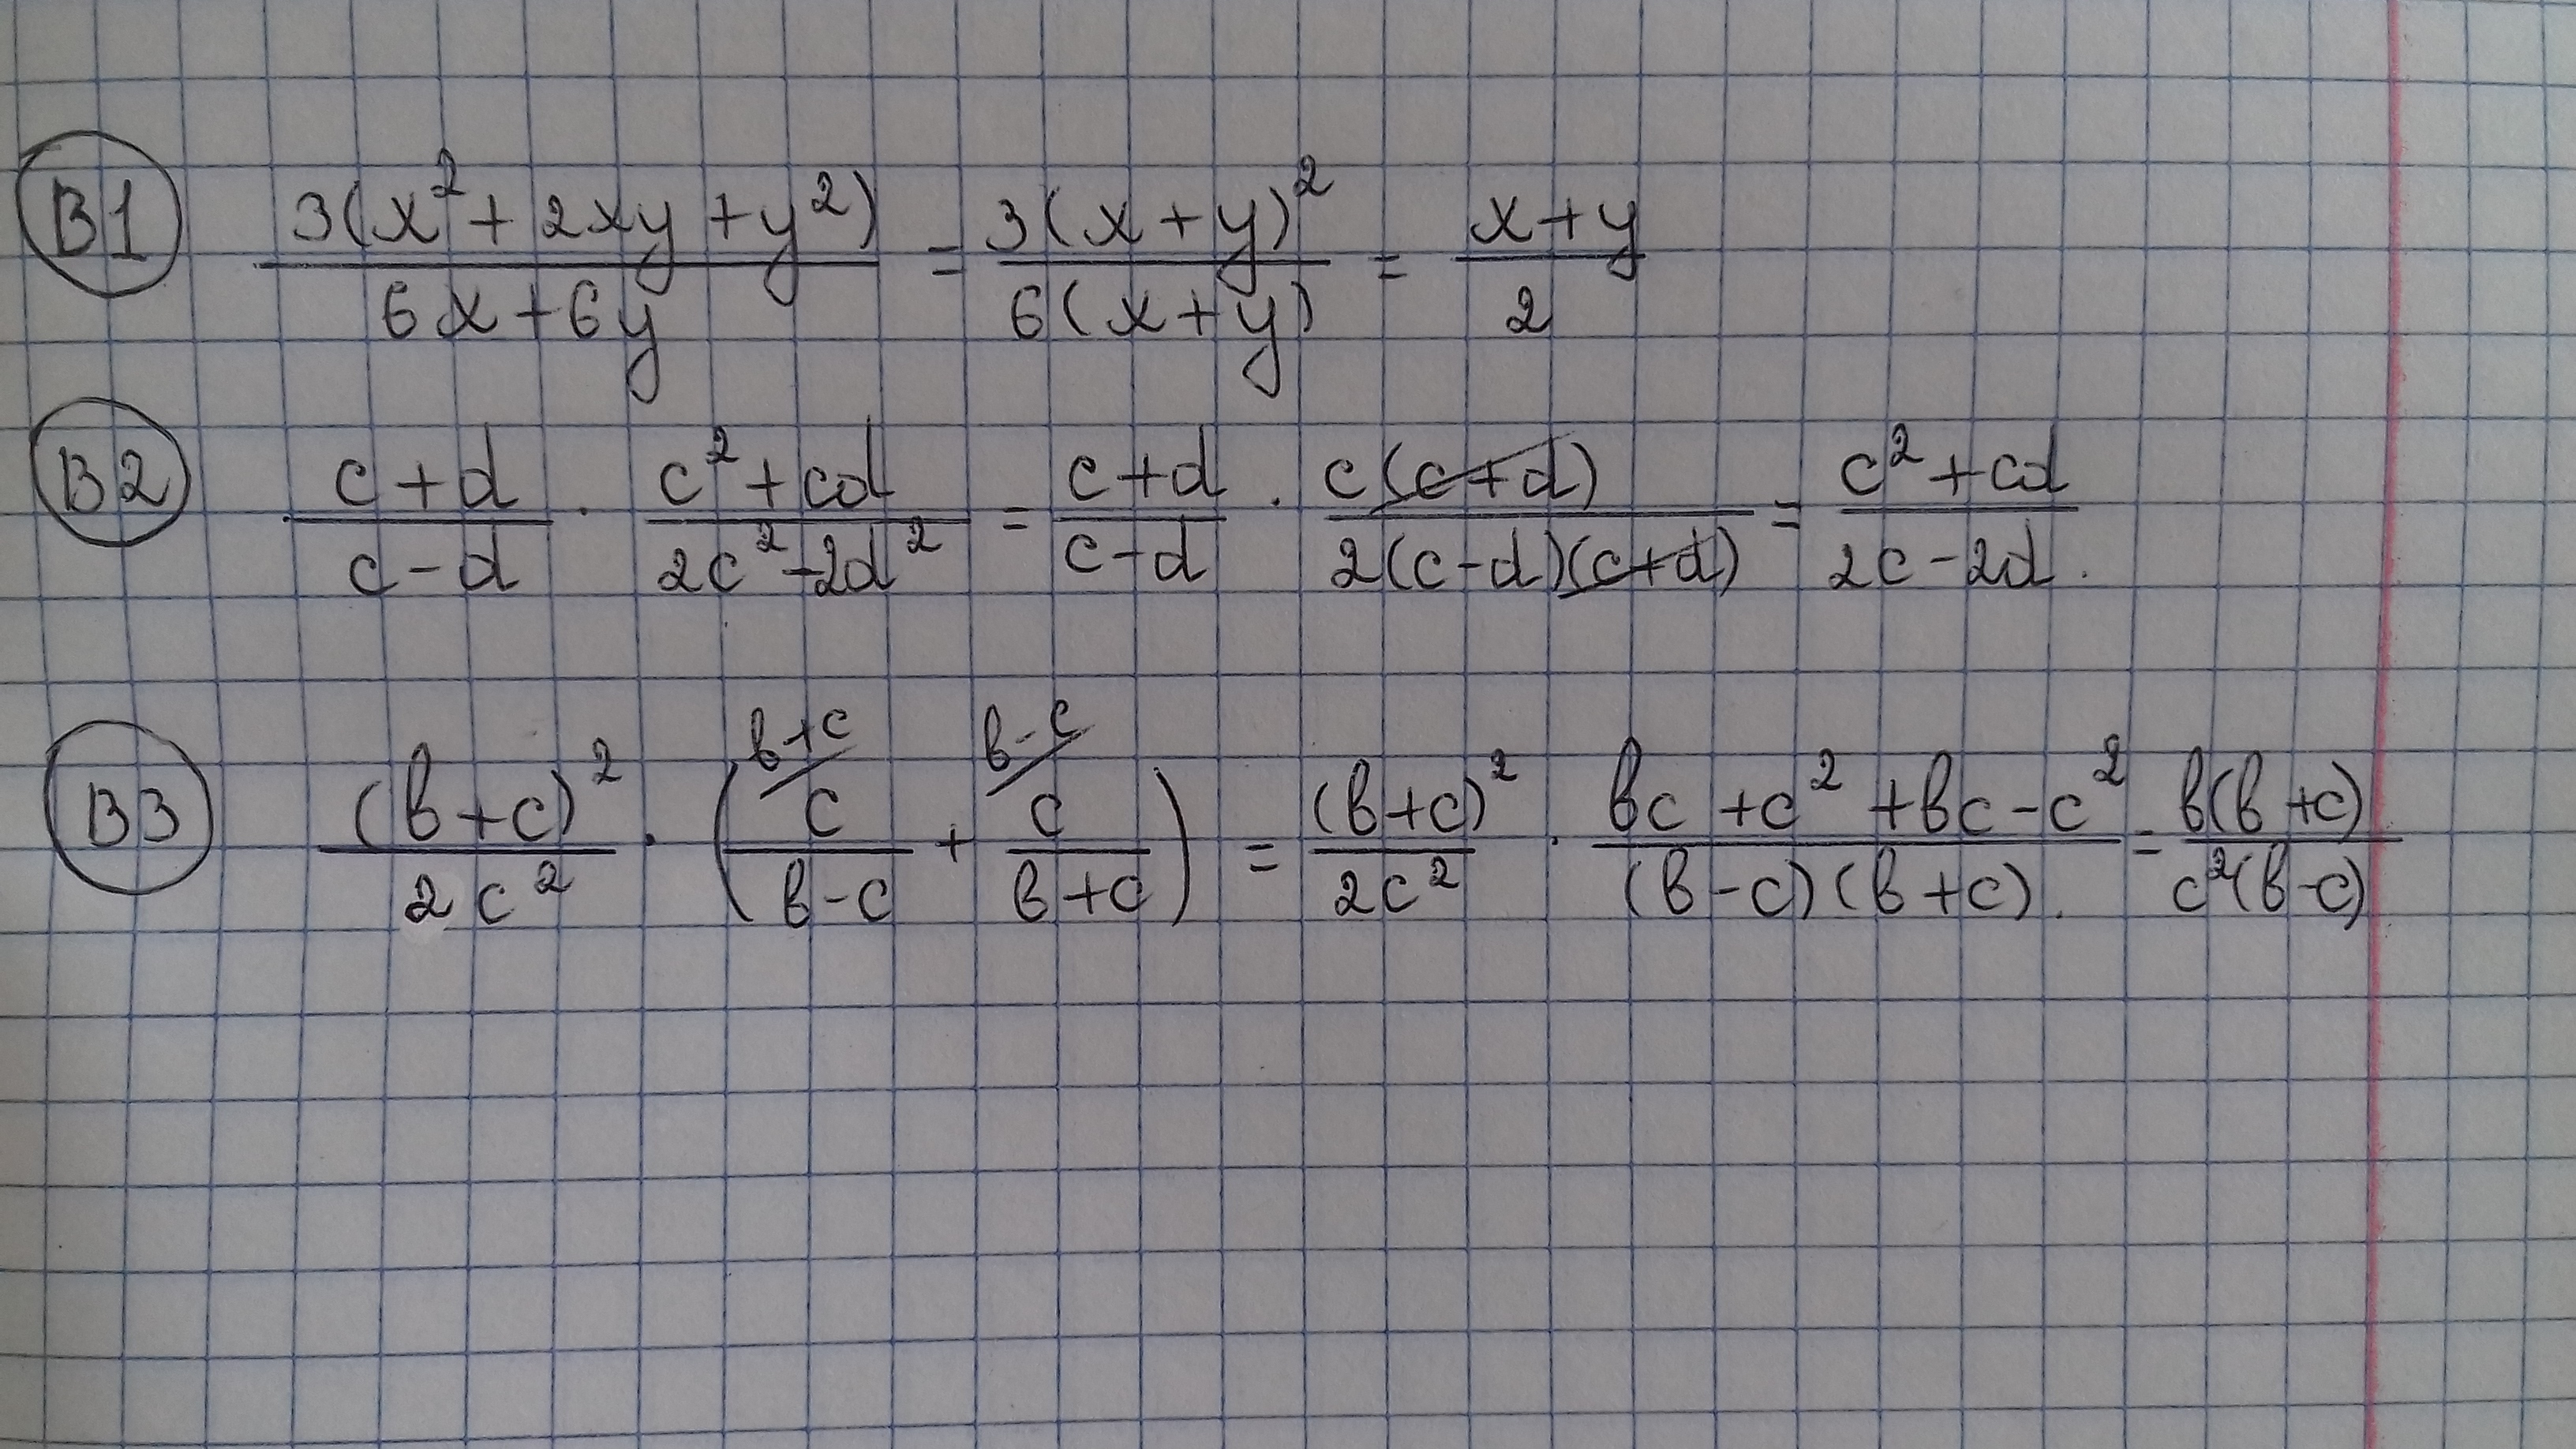 B1 3(x²+2xy+y²)/(6x+6y) = 3(x+y)²/(6(x+y)) = (x+y)/2
B2 (c+d)/(c-d) · (c²+cd)/(2c²-2d²) = (c+d)/(c-d) · c(c+d)/(2(c-d)(c+d)) = (c²+cd)/(2c-2d).
B3 (в+c)²/(2c²) · (в+c/ c/(в-c) + в-c/ c/(в+c)) = (в+c)²/(2c²) · (вc+c²+вc-c²)/((в-c)(в+c)). = в(в+c)/(c²(в-c))